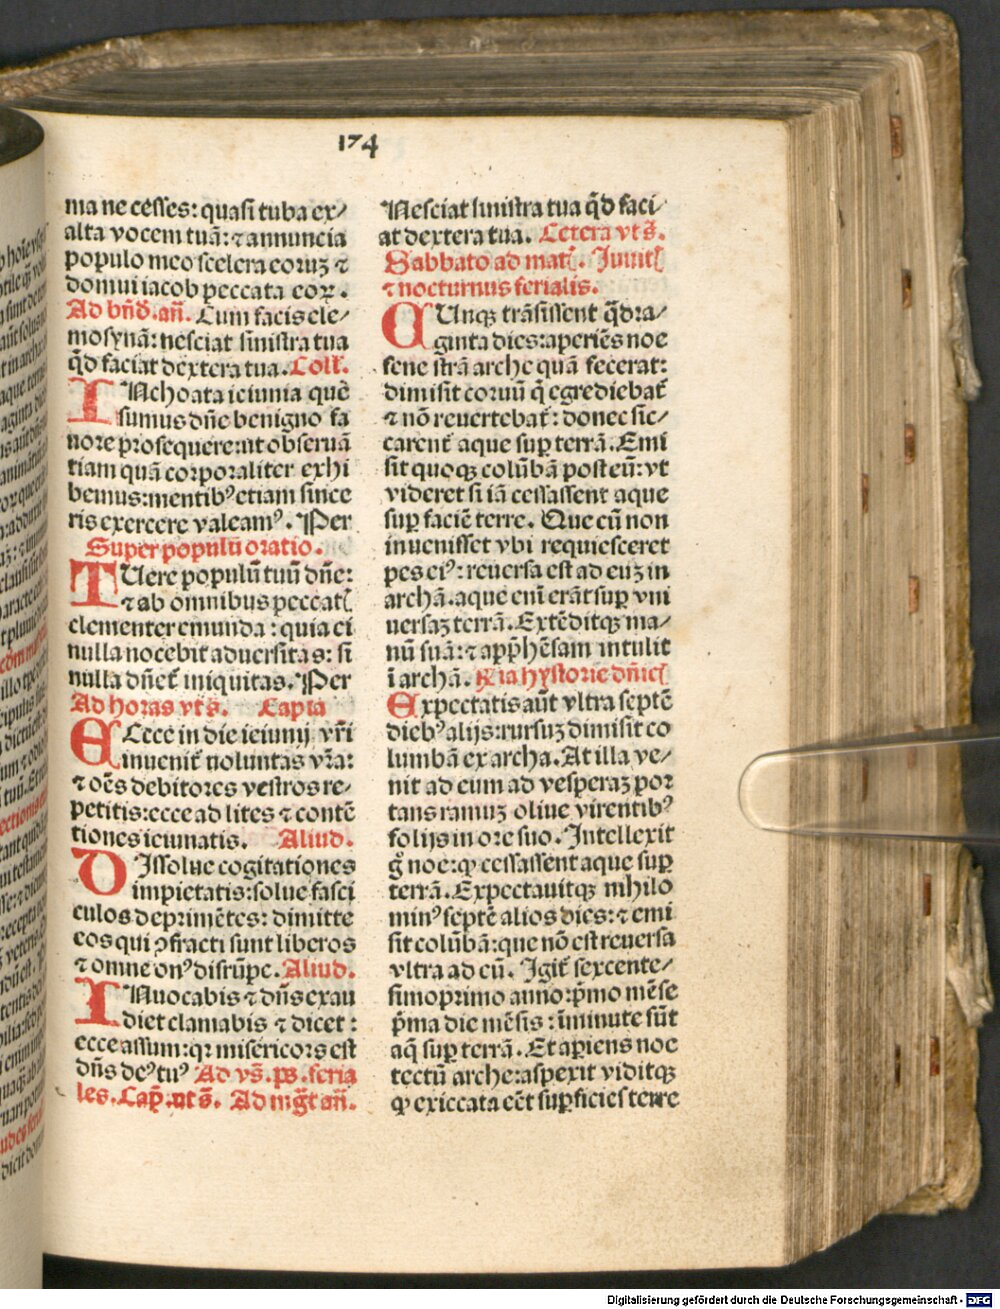 174
ma ne cesses: quasi tuba ex/
alta vocem tuã: ⁊ annuncia
populo meo scelera eoruꝫ ⁊
domui iacob peccata eoꝝ.
Ad bñđ. añ. Cum facis ele/
mosynã: nesciat sinistra tua
qđ faciat dextera tua. Coll̃.
INchoata ieiunia quẽ
sumus dñe benigno fa
uore prosequere: ut obseruã
tiam quã corporaliter exhi
bemus: mentibꝰ etiam since
ris exercere valeamꝰ. Per
Super populũ oratio.
TUere populũ tuũ dñe:
⁊ ab omnibus peccatꝭ
clementer emunda: quia ei
nulla nocebit aduersitas: si
nulla dñet̃ iniquitas. Per
Ad horas vt s̃. Capĩa
ECce in die ieiunij vr̃i
inuenit̃ voluntas vr̃a:
⁊ oẽs debitores vestros re/
petitis: ecce ad lites ⁊ contẽ
tiones ieiunatis. Aliud.
DIssolue cogitationes
impietatis: solue fasci
culos deprimẽtes: dimitte
eos qui ꝯfracti sunt liberos
⁊ omne onꝰ disrũpe. Aliud.
INuocabis ⁊ dñs exau
diet clamabis ⁊ dicet:
ecce assum: qꝛ misericors est
dñs deꝰ tuꝰ Ad vs̃. ps. feria
les. Cap̃. ut s̃. Ad mgt̃ añ.
Nesciat sinistra tua qđ faci/
at dextera tua. Cetera vt s̃.
Sabbato ad matꝭ. Inuitꝭ
⁊ nocturnus ferialis.
CUnqꝫ trãsissent qđra/
ginta dies: aperiẽs noe
fene strã arche quã fecerat:
dimisit coruũ q̃ egrediebat̃
⁊ nõ reuertebat̃: donec sic/
carent̃ aque suꝑ terrã. Emi
sit quoqꝫ colũbã post eũ: vt
videret si iã cessassent aque
suꝑ faciẽ terre. Que cũ non
inuenisset vbi requiesceret
pes eiꝰ: reuersa est ad euꝫ in
archã. aque eni erãt suꝑ vni
uersaꝫ terrã. Extẽditqꝫ ma/
nũ suã: ⁊ apꝑhẽsam intulit
ĩ archã. R̃ia hystorie dñicꝭ
Expectatis aũt vltra septẽ
diebꝰ alijs: rursuꝫ dimisit co
lumbã ex archa. At illa ve/
nit ad eum ad vesperaꝫ por
tans ramuꝫ oliue virentibꝰ
folijs in ore suo. Intellexit
g̃ noe: ꝙ cessassent aque suꝑ
terrã. Expectauitqꝫ nihilo
minꝰ septẽ alios dies: ⁊ emi
sit colũbã: que nõ est reuersa
vltra ad eũ. Igit̃ sexcente/
simoprimo anno: p̃mo mẽse
p̃ma die mẽsis: ĩminute sũt
aq̃ suꝑ terrã. Et aꝑiens noe
tectũ arche: aspexit viditqꝫ
ꝙ exiccata eẽt suꝑficies terre
Digitalisierung gefördert durch die Deutsche Forschungsgemeinschaft - DFG